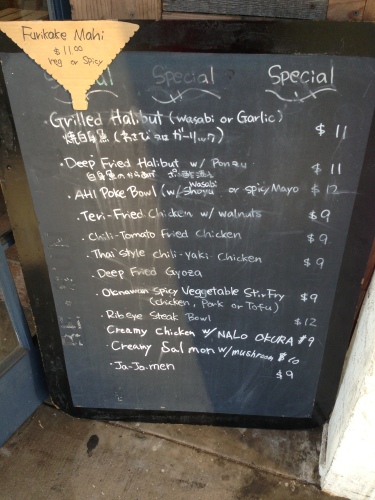 Furikake Mahi
$11.00
reg or Spicy
Special Special
Grilled Halibut (wasabi or Garlic)
$11
Deep Fried Halibut w/ Ponzu
$11
Wasabi
AHI Poke Bowl (w/ shoyu or spicy Mayo $12
Teri-Fried Chicken w/ walnuts $9
Chili-Tomato Fried Chicken $9
Thai style chili-yaki Chicken $9
Deep Fried Gyoza
Okinawan Spicy Veggetable Stir Fry $9
(chicken, Pork or Tofu)
Ribeye Steak Bowl $12
Creamy Chicken w/ NALO OKURA $9
Creamy Salmon w/ mushroom $10
Ja-Ja-men $9